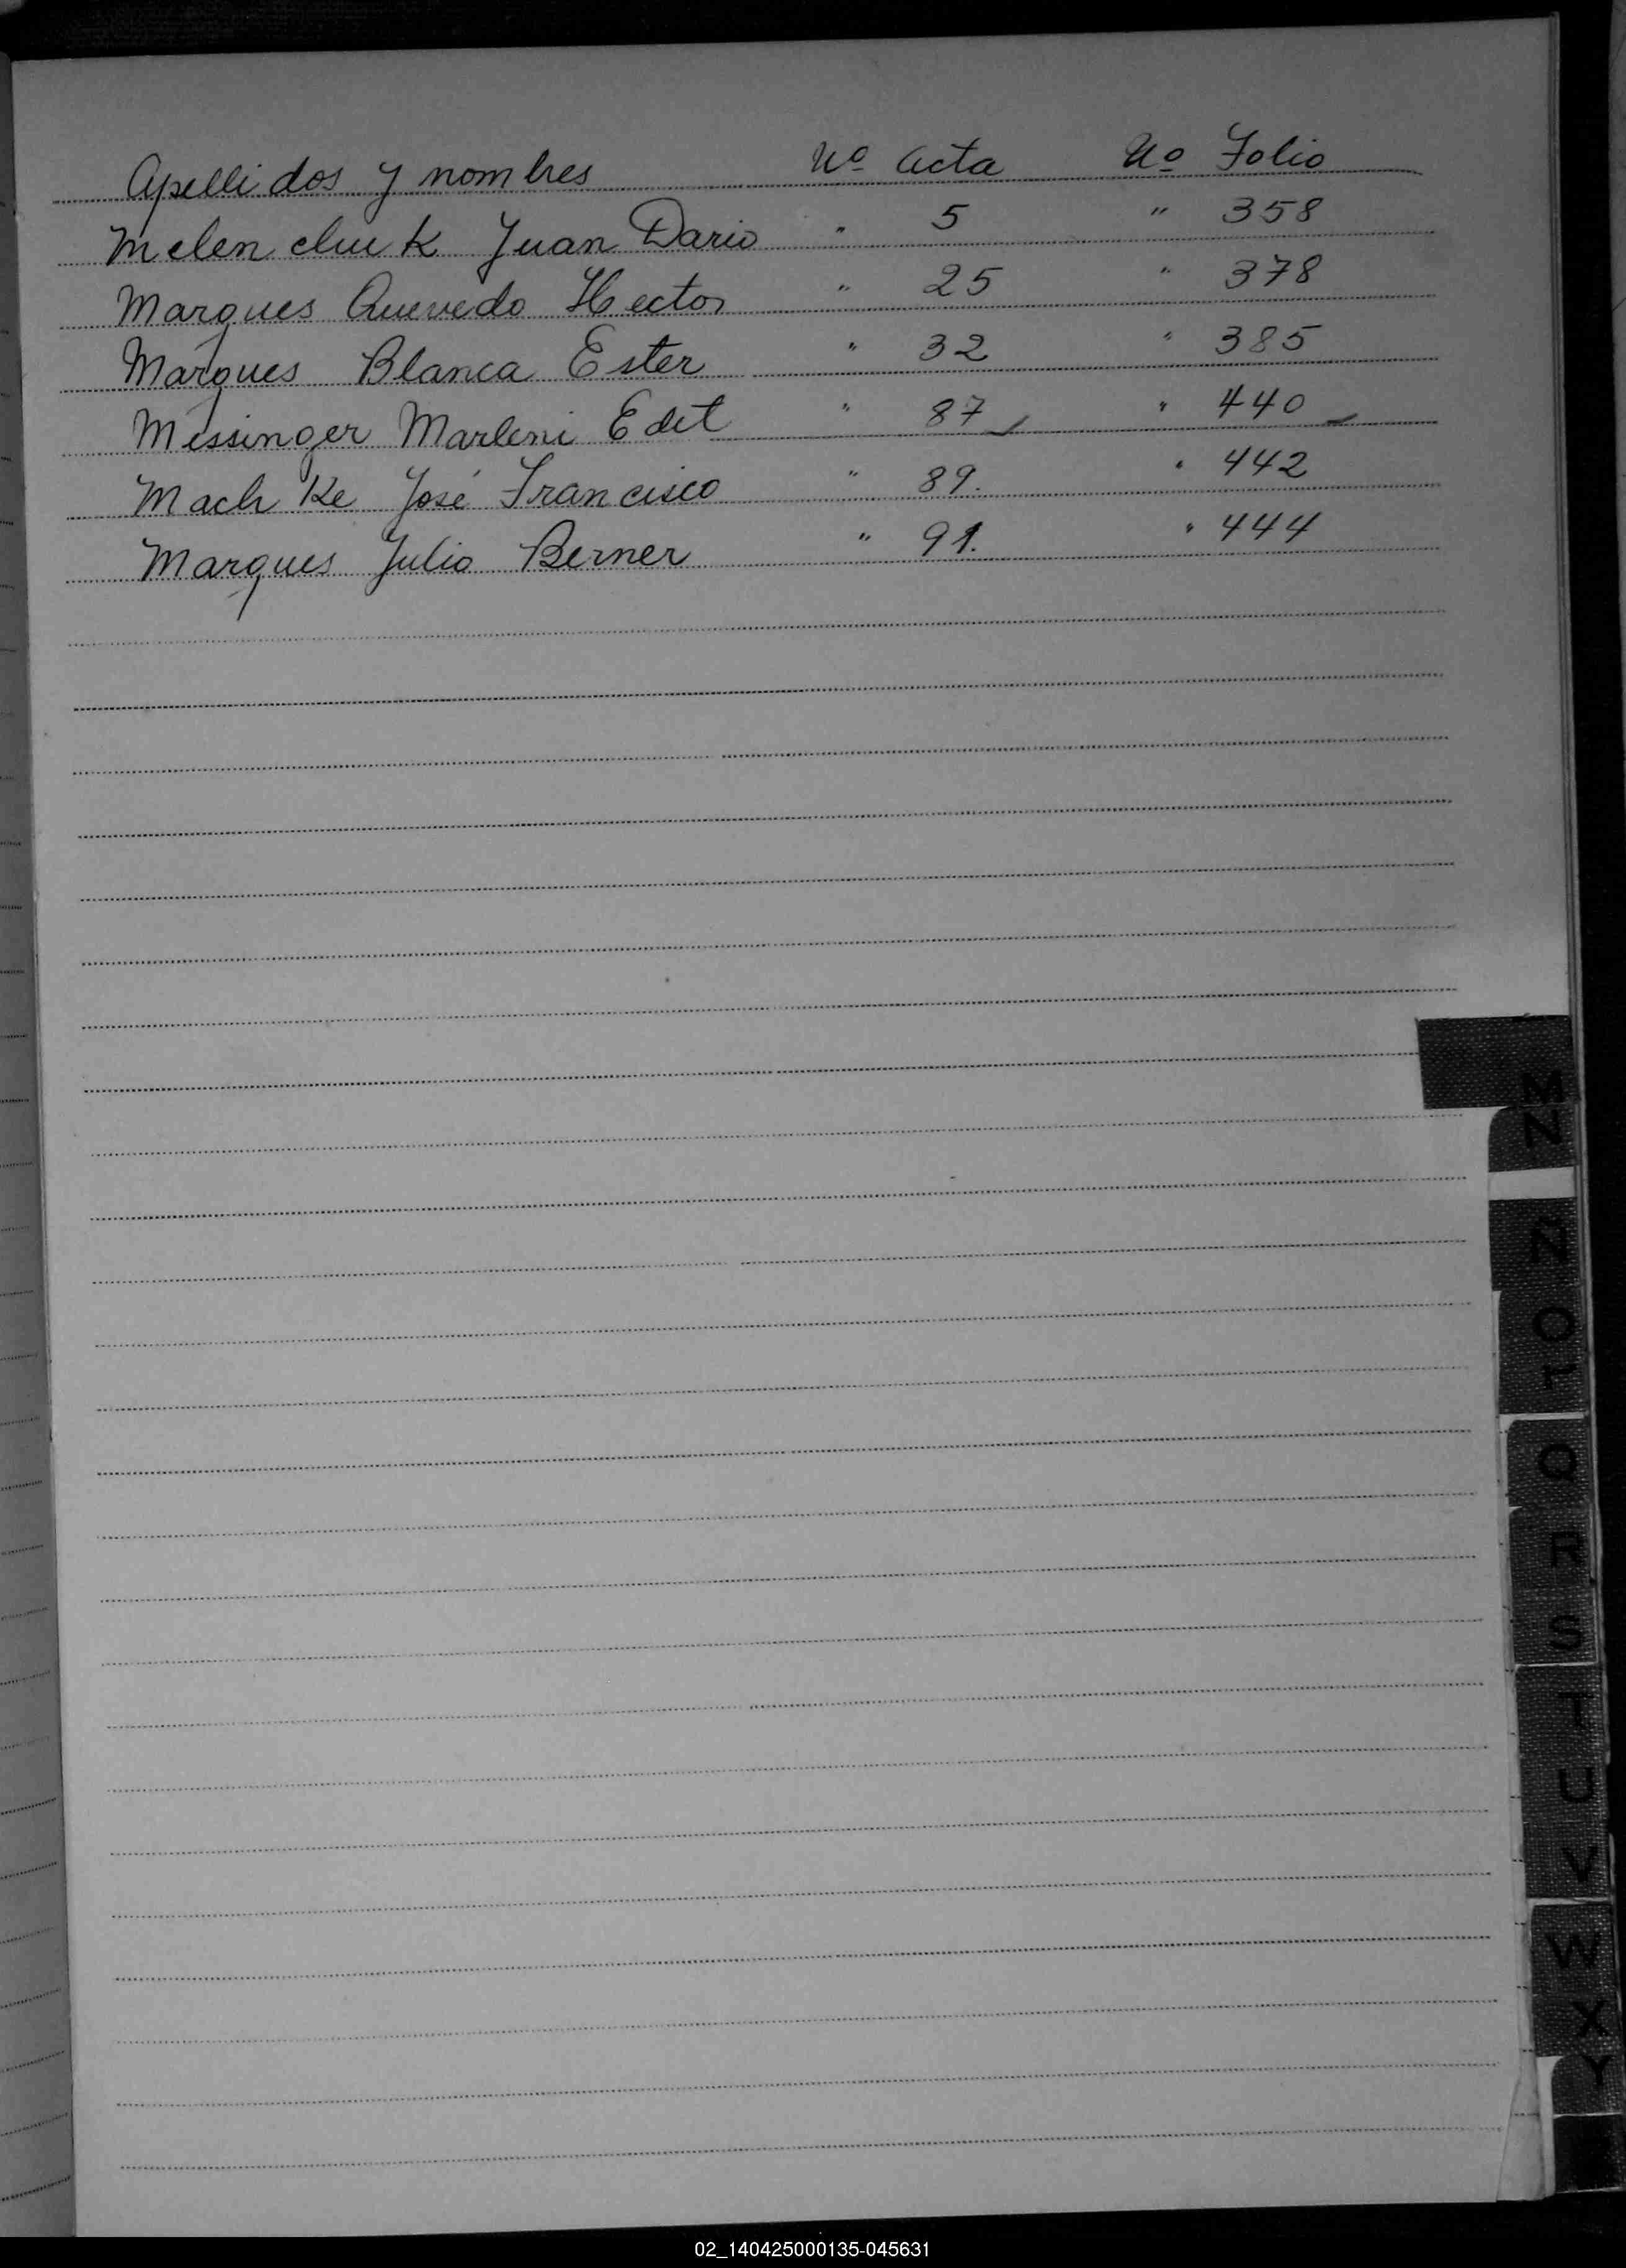 Apellidos y nombres Nº Acta Nº Folio
Melenchuk Juan Dario " 5 " 358
Marques Quevedo Hector " 25 " 378
Marques Blanca Ester " 32 " 385
Messinger Marleni Edit " 87 " 440
Machke José Francisco " 89. " 442
Marques Julio Berner " 91. " 444
M
N
Ñ
O
Q
R
S
T
U
V
W
X
Y
02_140425000135-045631